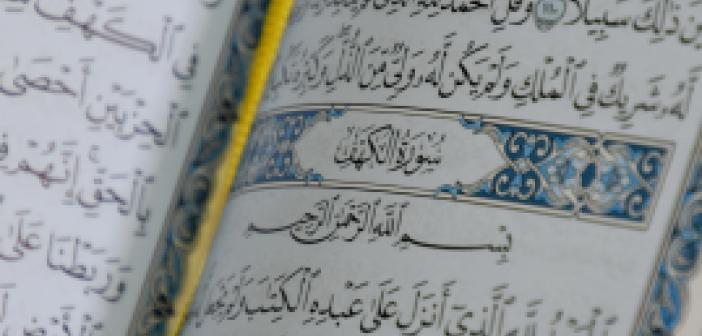 ذَٰلِكَ سَبِيلًا ١١٠ وَقُلِ ٱلْحَمْدُ لِلَّهِ ٱلَّذِي
لَّهُۥ شَرِيكٌ فِي ٱلْمُلْكِ وَلَمْ يَكُن لَّهُۥ وَلِيٌّ مِّنَ ٱلذُّلِّ وَكَبِّرْهُ تَكْبِيرًا
سُورَةُ ٱلْكَهْفِ
بِسْمِ ٱللَّهِ ٱلرَّحْمَٰنِ ٱلرَّحِيمِ
ٱلْحَمْدُ لِلَّهِ ٱلَّذِيٓ أَنزَلَ عَلَىٰ عَبْدِهِ ٱلْكِتَٰبَ وَلَمْ يَجْعَل
ٱلْكَهْفِ
ٱلْحِزْبَيْنِ أَحْصَىٰ
بِٱلْحَقِّ إِنَّهُمْ
وَرَبَطْنَا عَلَىٰ
وَٱلْأَرْضِ